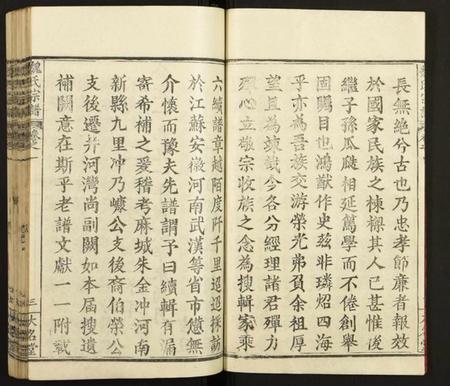 長無絕兮古也乃忠孝節廉者報效
於國家民族之棟樑其人已甚惟後
繼子孫瓜瓞相延篤學而不倦創舉
固屬目也鴻猷作史茲非璘炤四海
乎亦為吾族交游榮光弗負余祖厚
望且為竣哉今各分經理諸君殫力
殫心立敬宗收族之念為搜輯家乘
六續譜章越陌度阡千里迢迢採訪
於江蘇安徽河南武漢等省市儻無
介懷而豫夫先譜謂予曰續輯有漏
寄希補之爰稽考麻城朱金冲河南
新縣九里冲乃㠓公支後裔伯榮公
支後遷并河灣尚副闕如本届搜遺
補闕意在斯乎老譜文獻一一附載
魏氏宗譜
卷一
三
大名堂